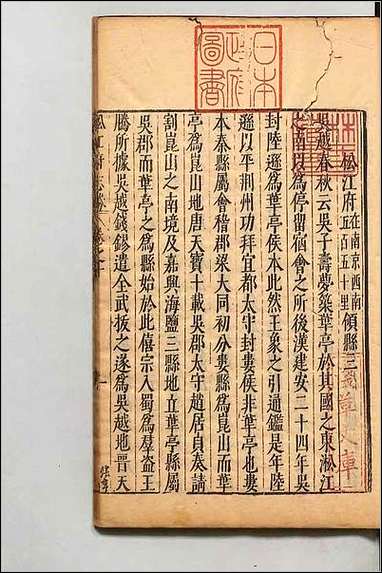 日本
政府
圖書
松江府在南京西南五百五十里領縣三
吳越春秋云吳子壽夢築華亭於其國之東淞江
之南以爲停留宿會之所後漢建安二十四年吳
封陸遜爲華亭侯本此然王象之引通鑑是年陸
遜以平荆州功拜宜都太守封婁侯非華亭也婁
本秦縣屬會稽郡梁大同初分婁縣爲崑山而華
亭爲崑山地唐天寶十載吳郡太守趙居貞奏請
割崑山之南境及嘉興海鹽三縣地立華亭縣屬
吳郡而華亭之爲縣始於此僖宗入蜀爲羣盜王
騰所據吳越錢鏐遣全武拔之遂爲吳越地晉天
松江府志